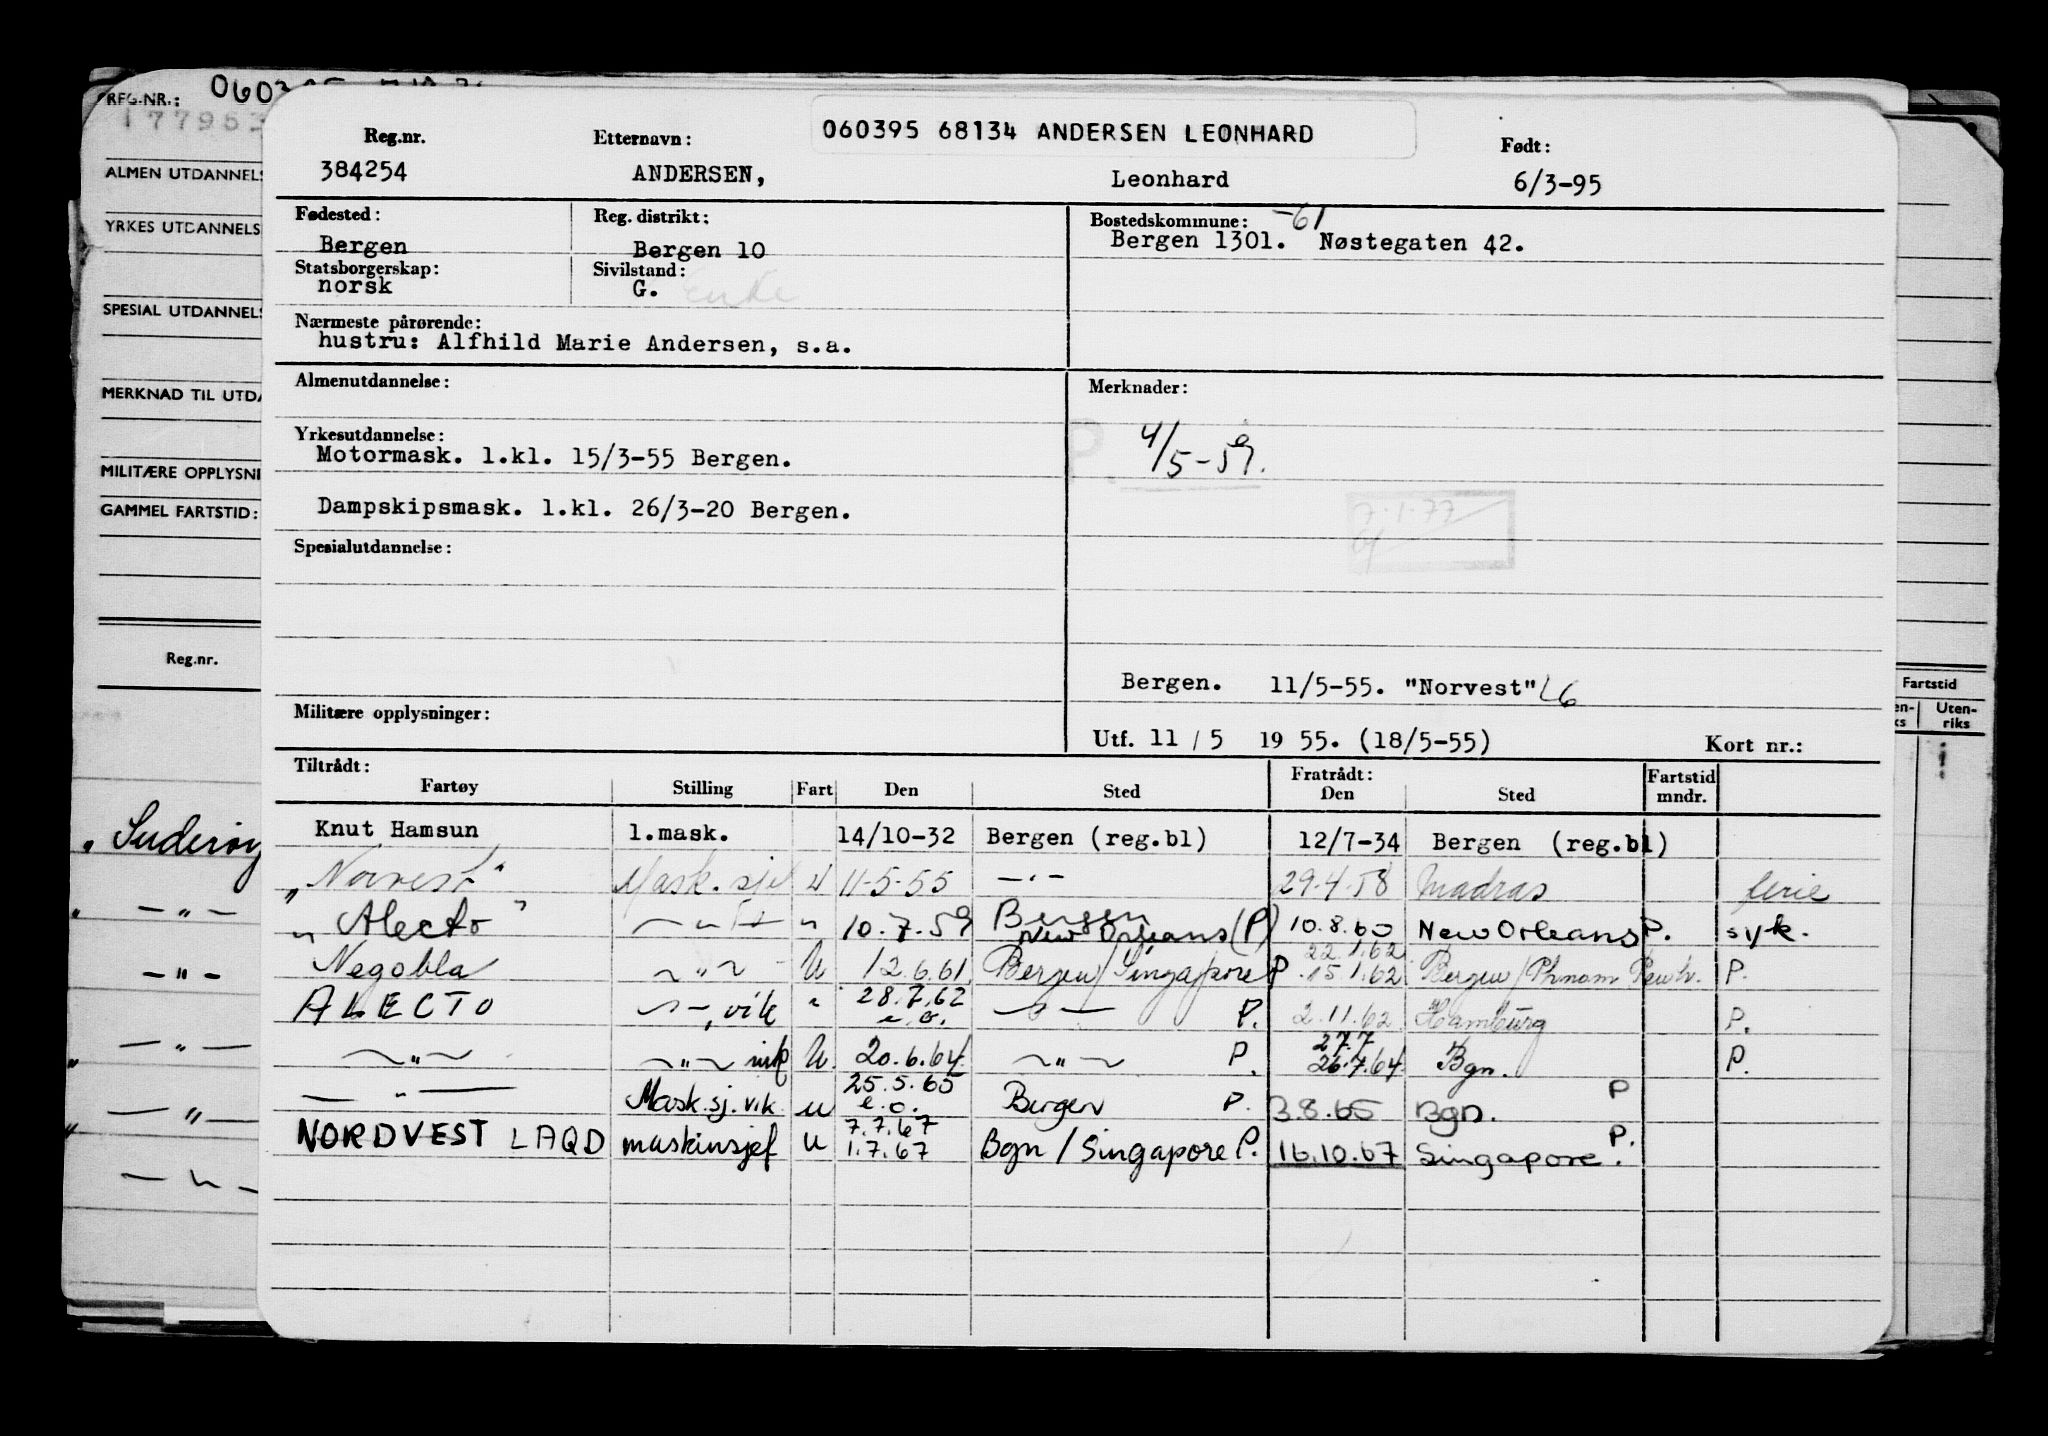 REG.-NR.:
ALMEN UTDANNELS
YRKES UTDANNELS
SPESIAL UTDANNELS
MERKNAD TIL UTDA
MILITÆRE OPPLYSNI
GAMMEL FARTSTID:
Reg.nr.
„ Suderøy
" — " —
— " —
" — " —
" — " —
060395 68134 ANDERSEN LEONHARD
Reg.nr. Etternavn: Født:
384254 ANDERSEN, Leonhard 6/3-95
Fødested: Reg. distrikt: Bostedskommune: -61
Bergen Bergen 10 Bergen 1301. Nøstegaten 42.
Statsborgerskap: Sivilstand:
norsk G. Enke
Nærmeste pårørende:
hustru: Alfhild Marie Andersen, s.a.
Almenutdannelse: Merknader:
Yrkesutdannelse: P. 4/5-59.
Motormask. 1.kl. 15/3-55 Bergen.
Dampskipsmask. 1.kl. 26/3-20 Bergen.
7.1.77
Spesialutdannelse:
Bergen. 11/5-55. "Norvest" L6
Militære opplysninger:
Utf. 11 / 5 19 55. (18/5-55) Kort nr.:
Tiltrådt: Fratrådt: Fartstid
Fartøy Stilling Fart Den Sted Den Sted mndr.
Knut Hamsun 1.mask. 14/10-32 Bergen (reg.bl) 12/7-34 Bergen (reg.bl)
„Norvest" Mask.sjef U 11-5-55 — " — 29.4.58 Madras ferie
„Alecto" — " — " 10.7.59 Bergen New Orleans (P) 10.8.60 New Orleans P. syk.
22.1.62
Negobla — " — U 12.6.61 Bergen/Singapore P. 15.1.62 Bergen/Phnom Penh. P.
28.7.62
ALECTO — " — , vik " e.o. — " — P. 2.11.62 Hamburg P.
27.7
— " — — " — vik U. 20.6.64 — " — P. 26.7.64 Bgn. P.
25.5.65
— " — Mask.sj.vik. u e.o. Bergen P. 3.8.65 Bgn. P
7.7.67
NORDVEST LAQD maskinsjef u 1.7.67 Bgn / Singapore P. 16.10.67 Singapore. P.
Fartstid
Uten-
riks